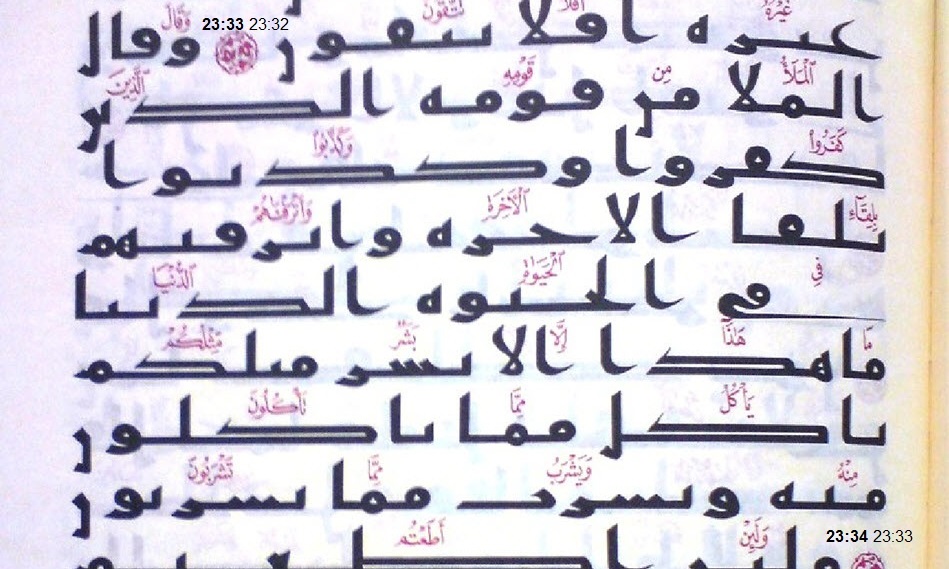 غَيْرُهُ أَفَلَا تَتَّقُونَ وَقَالَ
23:33 23:32
غيره افلا تتقون وقال
ٱلْمَلَأُ مِن قَوْمِهِ ٱلَّذِينَ
الملا من قومه الذين
كَفَرُوا۟ وَكَذَّبُوا۟
كفروا وكذبوا
بِلِقَآءِ ٱلْآخِرَةِ وَأَتْرَفْنَٰهُمْ
بلقا الاخره واترفنهم
فِي ٱلْحَيَوٰةِ ٱلدُّنْيَا
في الحيوه الدنيا
مَا هَٰذَآ إِلَّا بَشَرٌ مِّثْلُكُمْ
ما هذا الا بشر مثلكم
يَأْكُلُ مِمَّا تَأْكُلُونَ
ياكل مما تاكلون
مِنْهُ وَيَشْرَبُ مِمَّا تَشْرَبُونَ
منه ويشرب مما تشربون
وَلَئِنْ أَطَعْتُم
23:34 23:33